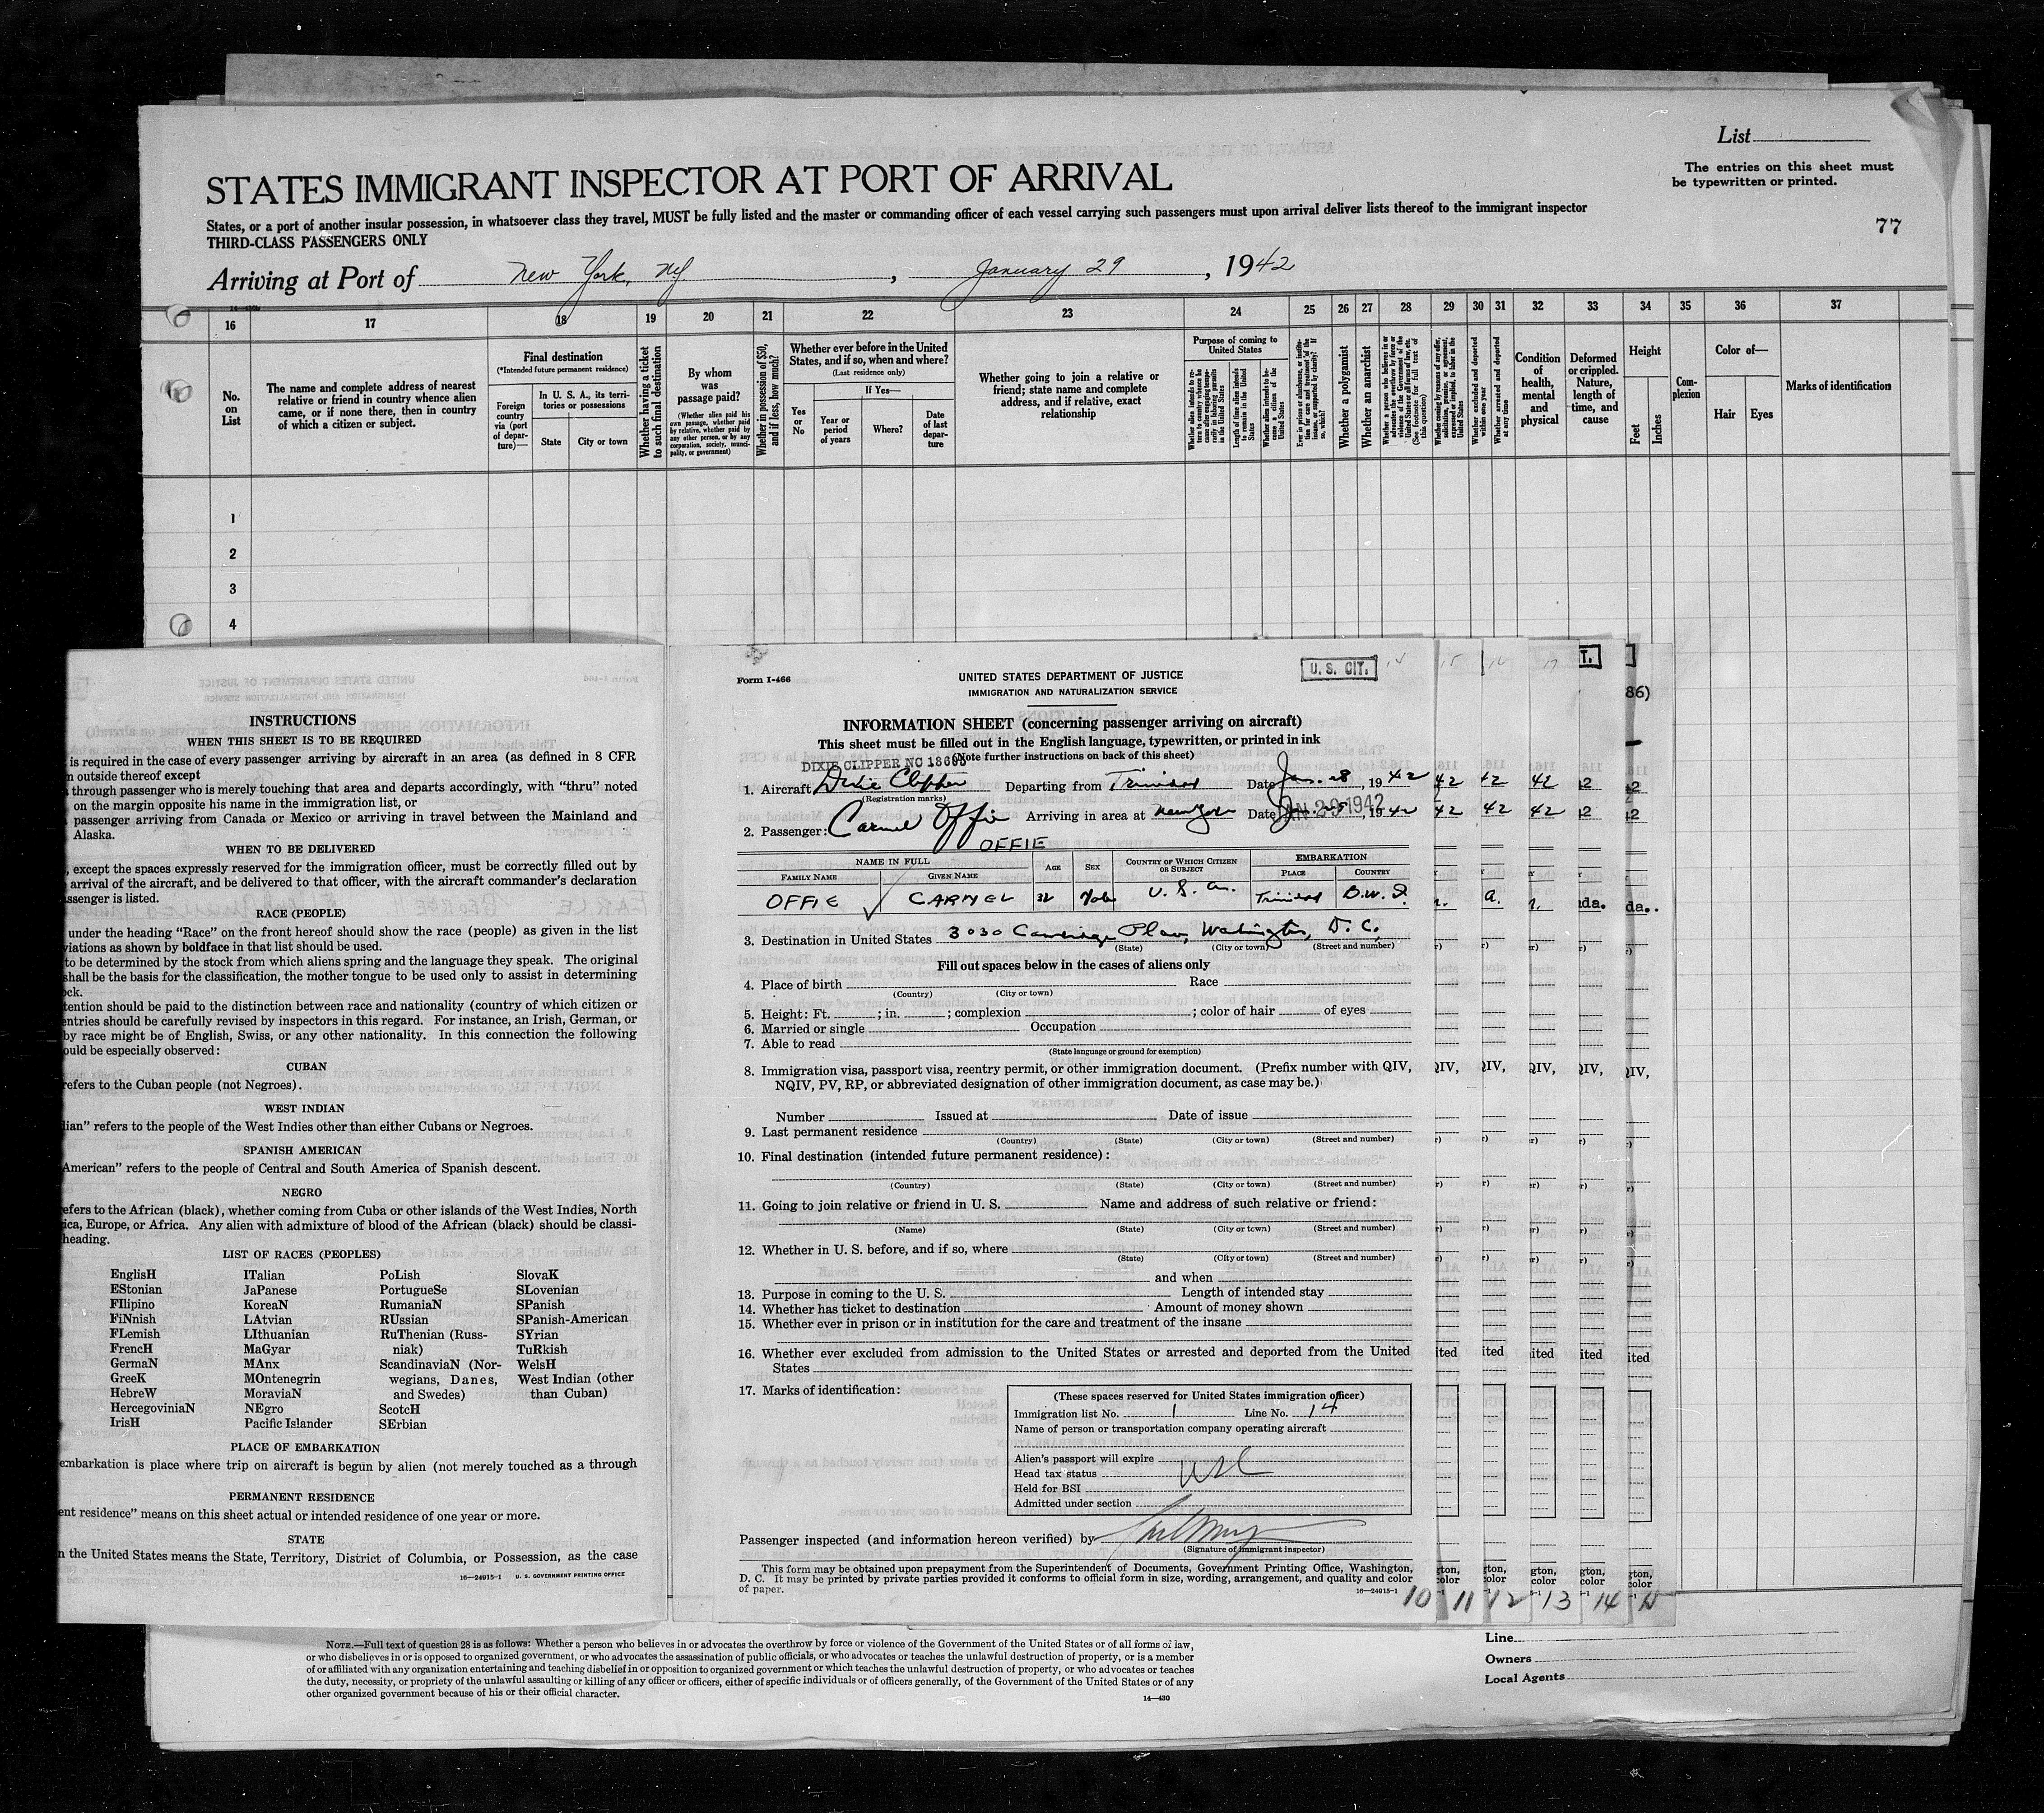 List
The entries on this sheet must
be typewritten or printed.
STATES IMMIGRANT INSPECTOR AT PORT OF ARRIVAL
States, or a port of another insular possession, in whatsoever class they travel, MUST be fully listed and the master or commanding officer of each vessel carrying such passengers must upon arrival deliver lists thereof to the immigrant inspector
THIRD-CLASS PASSENGERS ONLY
77
Arriving at Port of New York, NY, January 29, 1942
16 17 18 19 20 21 22 23 24 25 26 27 28 29 30 31 32 33 34 35 36 37
No.
on
List
The name and complete address of nearest
relative or friend in country whence alien
came, or if none there, then in country
of which a citizen or subject.
Final destination
(*Intended future permanent residence)
Foreign
country
via (port
of depar-
ture)—
In U. S. A., its terri-
tories or possessions
State
City or town
Whether having a ticket
to such final destination
By whom
was
passage paid?
(Whether alien paid his
own passage, whether paid
by relative, whether paid by
any other person, or by any
corporation, society, munici-
pality, or government)
Whether in possession of $50,
and if less, how much?
Whether ever before in the United
States, and if so, when and where?
(Last residence only)
Yes
or
No
If Yes—
Year or
period
of years
Where?
Date
of last
depar-
ture
Whether going to join a relative or
friend; state name and complete
address, and if relative, exact
relationship
Purpose of coming to
United States
Length of time alien intends
to remain in the United
States
Whether a polygamist
Whether an anarchist
Whether excluded and deported
within one year
Whether arrested and deported
at any time
Condition
of
health,
mental
and
physical
Deformed
or crippled.
Nature,
length of
time, and
cause
Height
Feet
Inches
Com-
plexion
Color of—
Hair
Eyes
Marks of identification
1
2
3
4
INSTRUCTIONS
WHEN THIS SHEET IS TO BE REQUIRED
is required in the case of every passenger arriving by aircraft in an area (as defined in 8 CFR
outside thereof except
through passenger who is merely touching that area and departs accordingly, with "thru" noted
on the margin opposite his name in the immigration list, or
passenger arriving from Canada or Mexico or arriving in travel between the Mainland and
Alaska.
WHEN TO BE DELIVERED
, except the spaces expressly reserved for the immigration officer, must be correctly filled out by
arrival of the aircraft, and be delivered to that officer, with the aircraft commander's declaration
ssenger is listed.
RACE (PEOPLE)
under the heading "Race" on the front hereof should show the race (people) as given in the list
viations as shown by boldface in that list should be used.
to be determined by the stock from which aliens spring and the language they speak. The original
shall be the basis for the classification, the mother tongue to be used only to assist in determining
ock.
tention should be paid to the distinction between race and nationality (country of which citizen or
entries should be carefully revised by inspectors in this regard. For instance, an Irish, German, or
by race might be of English, Swiss, or any other nationality. In this connection the following
ould be especially observed:
CUBAN
refers to the Cuban people (not Negroes).
WEST INDIAN
ian" refers to the people of the West Indies other than either Cubans or Negroes.
SPANISH AMERICAN
American" refers to the people of Central and South America of Spanish descent.
NEGRO
efers to the African (black), whether coming from Cuba or other islands of the West Indies, North
ica, Europe, or Africa. Any alien with admixture of blood of the African (black) should be classi-
heading.
LIST OF RACES (PEOPLES)
EnglisH ITalian PoLish SlovaK
EStonian JaPanese PortugueSe SLovenian
FIlipino KoreaN RumaniaN SPanish
FiNnish LAtvian RUssian SPanish-American
FLemish LIthuanian RuThenian (Russ- SYrian
FrencH MaGyar niak) TuRkish
GermaN MAnx ScandinaviaN (Nor- WelsH
GreeK MOntenegrin wegians, Danes, West Indian (other
HebreW MoraviaN and Swedes) than Cuban)
HercegoviniaN NEgro ScotcH
IrisH Pacific Islander SErbian
PLACE OF EMBARKATION
embarkation is place where trip on aircraft is begun by alien (not merely touched as a through
PERMANENT RESIDENCE
ent residence" means on this sheet actual or intended residence of one year or more.
STATE
n the United States means the State, Territory, District of Columbia, or Possession, as the case
16—24915-1 U. S. GOVERNMENT PRINTING OFFICE
Form I-466
UNITED STATES DEPARTMENT OF JUSTICE
IMMIGRATION AND NATURALIZATION SERVICE
U. S. CIT. 14 15 16 17
INFORMATION SHEET (concerning passenger arriving on aircraft)
This sheet must be filled out in the English language, typewritten, or printed in ink
(Note further instructions on back of this sheet)
DIXIE CLIPPER NC 18605
1. Aircraft Dixie Clipper Departing from Trinidad Date Jan. 28, 1942
(Registration marks)
JAN 29 1942
2. Passenger: Carmel Offie Arriving in area at New York Date , 1942
OFFIE
NAME IN FULL AGE SEX COUNTRY OF WHICH CITIZEN OR SUBJECT EMBARKATION
FAMILY NAME GIVEN NAME PLACE COUNTRY
OFFIE CARMEL 32 Male U. S. A. Trinidad B.W.I.
3. Destination in United States 3030 Cambridge Place, Washington, D. C.
(State) (City or town) (Street and number)
Fill out spaces below in the cases of aliens only
4. Place of birth Race
(Country) (City or town)
5. Height: Ft. ; in. ; complexion ; color of hair of eyes
6. Married or single Occupation
7. Able to read
(State language or ground for exemption)
8. Immigration visa, passport visa, reentry permit, or other immigration document. (Prefix number with QIV,
NQIV, PV, RP, or abbreviated designation of other immigration document, as case may be.)
Number Issued at Date of issue
9. Last permanent residence
(Country) (State) (City or town) (Street and number)
10. Final destination (intended future permanent residence):
(Country) (State) (City or town) (Street and number)
11. Going to join relative or friend in U. S. Name and address of such relative or friend:
(Name) (State) (City or town) (Street and number)
12. Whether in U. S. before, and if so, where
(State) (City or town) (Street and number)
and when
13. Purpose in coming to the U. S. Length of intended stay
14. Whether has ticket to destination Amount of money shown
15. Whether ever in prison or in institution for the care and treatment of the insane
16. Whether ever excluded from admission to the United States or arrested and deported from the United
States
17. Marks of identification:
(These spaces reserved for United States immigration officer)
Immigration list No. 1 Line No. 14
Name of person or transportation company operating aircraft
Alien's passport will expire
Head tax status USC
Held for BSI
Admitted under section
Passenger inspected (and information hereon verified) by
(Signature of immigrant inspector)
This form may be obtained upon prepayment from the Superintendent of Documents, Government Printing Office, Washington,
D. C. It may be printed by private parties provided it conforms to official form in size, wording, arrangement, and quality and color
of paper.
16—24915-1
10 11 12 13 14
NOTE.—Full text of question 28 is as follows: Whether a person who believes in or advocates the overthrow by force or violence of the Government of the United States or of all forms of law,
or who disbelieves in or is opposed to organized government, or who advocates the assassination of public officials, or who advocates or teaches the unlawful destruction of property, or is a member
of or affiliated with any organization entertaining and teaching disbelief in or opposition to organized government or which teaches the unlawful destruction of property, or who advocates or teaches
the duty, necessity, or propriety of the unlawful assaulting or killing of any officer or officers, either of specific individuals or of officers generally, of the Government of the United States or of any
other organized government because of his or their official character.
14—430
Line
Owners
Local Agents